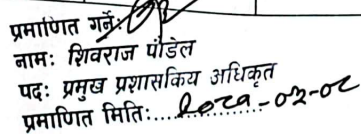 प्रमाणित गर्नेः
नामः शिवराज पौडेल
पदः प्रमुख प्रशासकिय अधिकृत
प्रमाणित मितिः..................